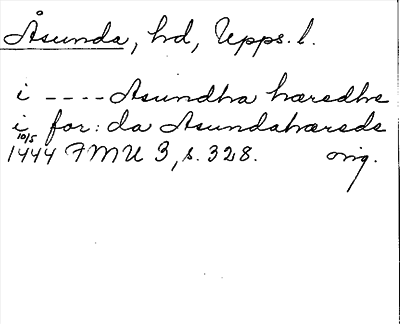 Åsunda, hd, Upps. l.
i ---- Asundha hæredhe
i for:da Asundahæreds
10/5 1444 FMU 3, s. 328. orig.